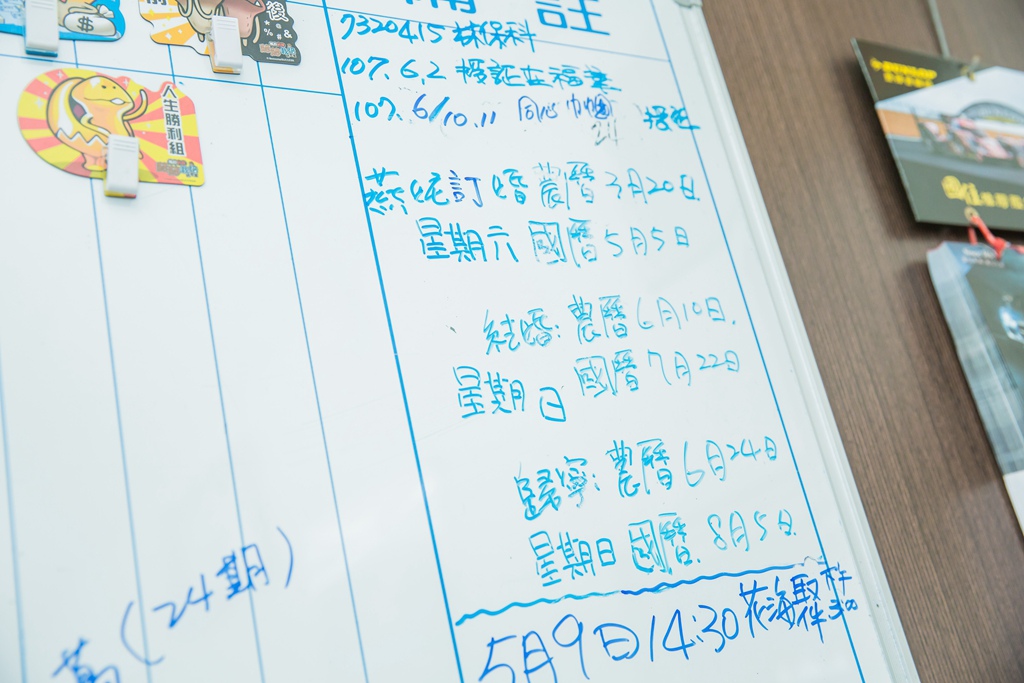 後
$
人生勝利組
註
7320415 林保科
107.6.2
107. 6/10.11 同心巾幗
燕妮訂婚 農曆3月20日.
星期六 國曆5月5日
結婚: 農曆6月10日.
星期日 國曆7月22日
歸寧: 農曆6月24日
星期日 國曆 8月5日.
5月9日14:30 花海
萬(24期)